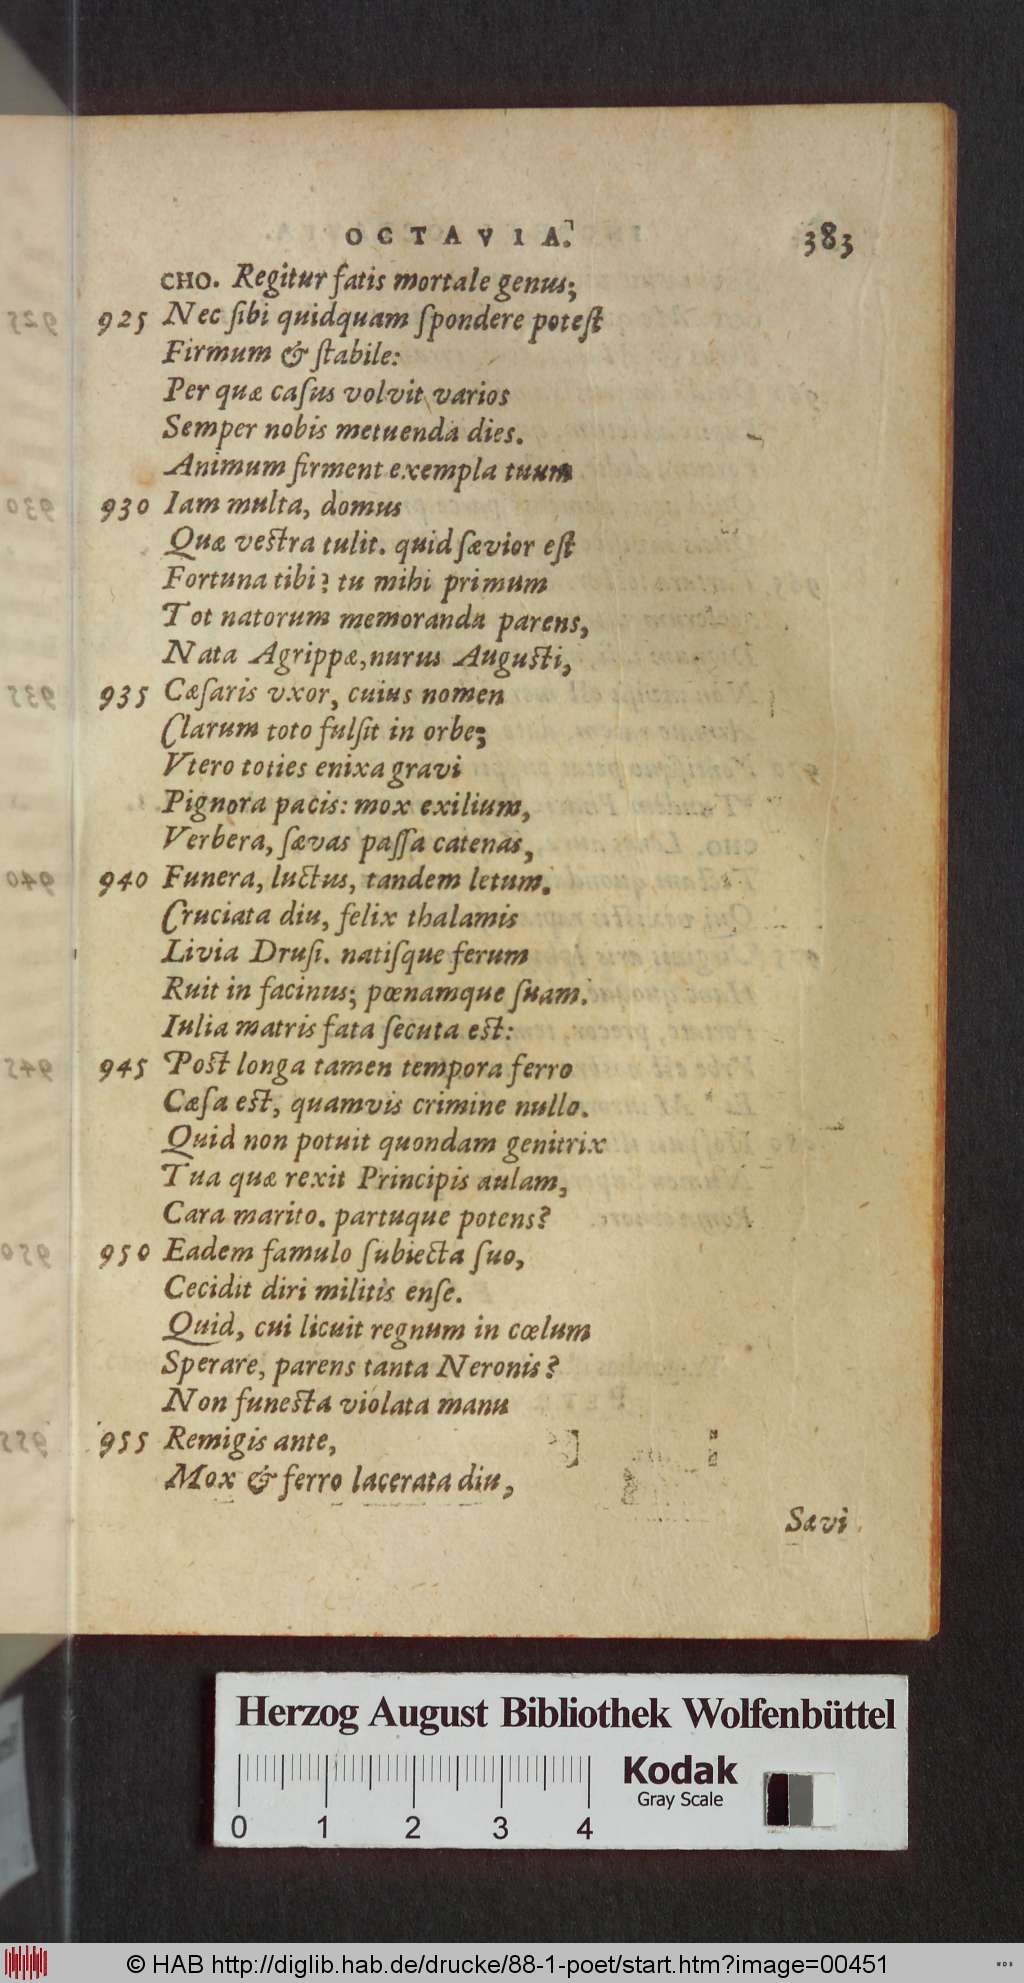 OCTAVIA. 383
CHO. Regitur fatis mortale genus;
925 Nec ſibi quidquam ſpondere poteſt
Firmum & ſtabile:
Per quæ caſus volvit varios
Semper nobis metuenda dies.
Animum firment exempla tuum
930 Iam multa, domus
Quæ veſtra tulit. quid ſævior eſt
Fortuna tibi? tu mihi primum
Tot natorum memoranda parens,
Nata Agrippæ, nurus Auguſti,
935 Cæſaris vxor, cuius nomen
Clarum toto fulſit in orbe;
Vtero toties enixa gravi
Pignora pacis: mox exilium,
Verbera, ſævas paſſa catenas,
940 Funera, luctus, tandem letum.
Cruciata diu, felix thalamis
Livia Druſi. natiſque ferum
Ruit in facinus; pœnamque ſuam.
Iulia matris fata ſecuta eſt:
945 Poſt longa tamen tempora ferro
Cæſa eſt, quamvis crimine nullo.
Quid non potuit quondam genitrix
Tua quæ rexit Principis aulam,
Cara marito. partuque potens?
950 Eadem famulo ſubiecta ſuo,
Cecidit diri militis enſe.
Quid, cui licuit regnum in cœlum
Sperare, parens tanta Neronis?
Non funeſta violata manu
955 Remigis ante,
Mox & ferro lacerata diu,
Sævi
Herzog August Bibliothek Wolfenbüttel
Kodak
Gray Scale
0 1 2 3 4
© HAB http://diglib.hab.de/drucke/88-1-poet/start.htm?image=00451